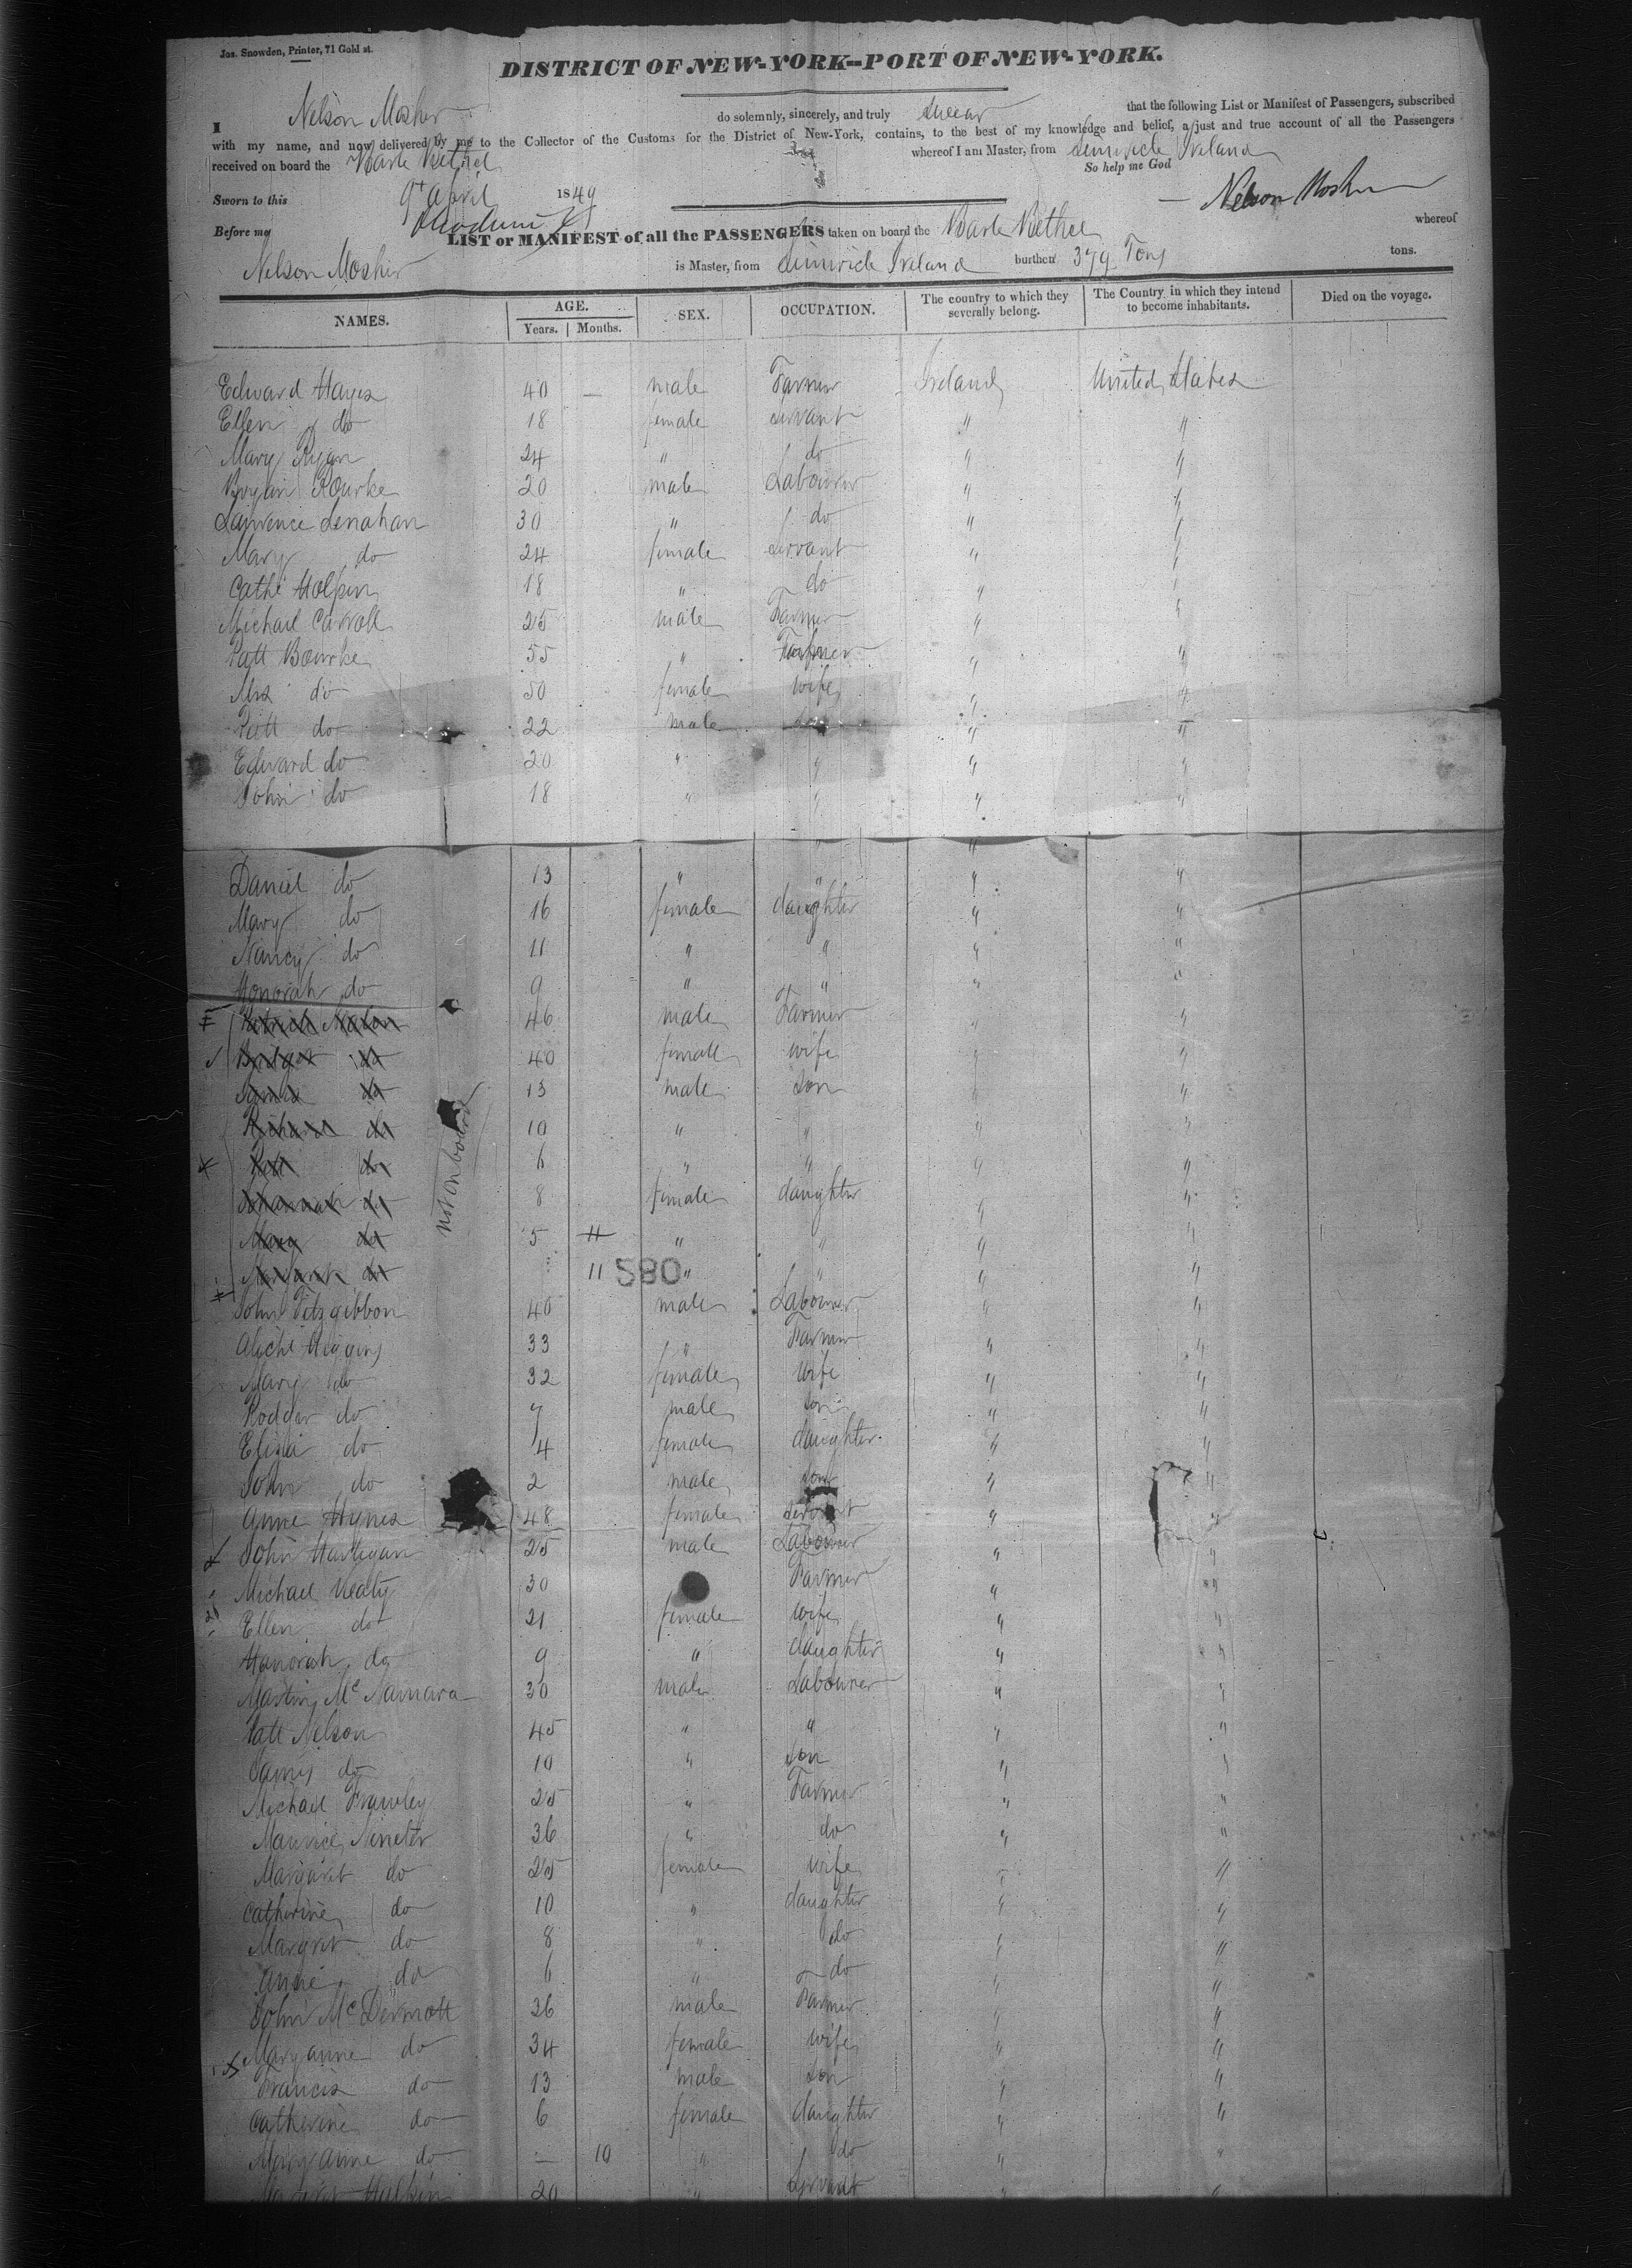 Jos. Snowden, Printer, 71 Gold st.
DISTRICT OF NEW-YORK--PORT OF NEW-YORK.
I Nelson Mosher do solemnly, sincerely, and truly swear that the following List or Manifest of Passengers, subscribed
with my name, and now delivered by me to the Collector of the Customs for the District of New-York, contains, to the best of my knowledge and belief, a just and true account of all the Passengers
received on board the Bark Bethel whereof I am Master, from Limrick Ireland
So help me God
Sworn to this 9th April 1849 Nelson Mosher
Before me
LIST or MANIFEST of all the PASSENGERS taken on board the Bark Bethel whereof
Nelson Mosher is Master, from Limrick Ireland burthen 379 Tons tons.
NAMES. AGE. Years. Months. SEX. OCCUPATION. The country to which they severally belong. The Country in which they intend to become inhabitants. Died on the voyage.
Edward Hayes 40 — male Farmer Ireland United States
Ellen do 18 female servant " "
Mary Ryan 24 " do " "
Bryan Rourke 20 male Labourer " "
Lawrence Lenahan 30 " do " "
Mary do 24 female servant " "
Cathe Halpin 18 " do " "
Michael Carroll 25 male Farmer " "
Patt Bourke 55 " Farmer " "
Mrs do 50 female wife " "
Patt do 22 male " "
Edward do 20 " " " "
John do 18 " " " "
Daniel do 13 " " " "
Mary do 16 female daughter " "
Nancy do 11 " " " "
Honorah do 9 " " " "
Patrick 46 male Farmer " "
Bridget do 40 female wife " "
James do 13 male son " "
Richard do 10 " " " "
Patt do 6 " " " "
Johannah do 8 female daughter " "
Mary do 5 11 " " " "
Margaret do 11 " " " "
not on board
580
John Fitzgibbon 40 male Labourer " "
Michl Higgins 33 " Farmer " "
Mary do 32 female wife " "
Rodger do 7 male son " "
Eliza do 4 female daughter " "
John do 2 male son " "
Anne Hynes 48 female servant " "
John Hartigan 25 male Labourer " "
Michael Neaty 30 Farmer " "
Ellen do 21 female wife " "
Hanorah do 9 " daughter " "
Martin McNamara 30 male Labourer " "
Patt Nelson 45 " " " "
James do 10 " son " "
Michael Frawley 25 " Farmer " "
Maurice Nineter 36 " do " "
Margaret do 25 female wife " "
Catherine do 10 " daughter " "
Margret do 8 " do " "
Anne do 6 " do " "
John McDermott 36 male Farmer " "
Maryanne do 34 female wife " "
Francis do 13 male son " "
Catherine do 6 female daughter " "
Maryanne do — 10 " do " "
Margret Halpin 20 " servant " "